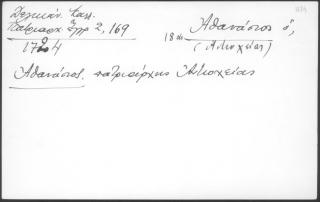 Δελικάν. Καλλ.
Πατριαρχ Εγγρ 2, 169
1724
18 αι Αθανάσιος ὁ,
(Αντιοχείας)
Αθανάσιος, πατριάρχης Αντιοχείας